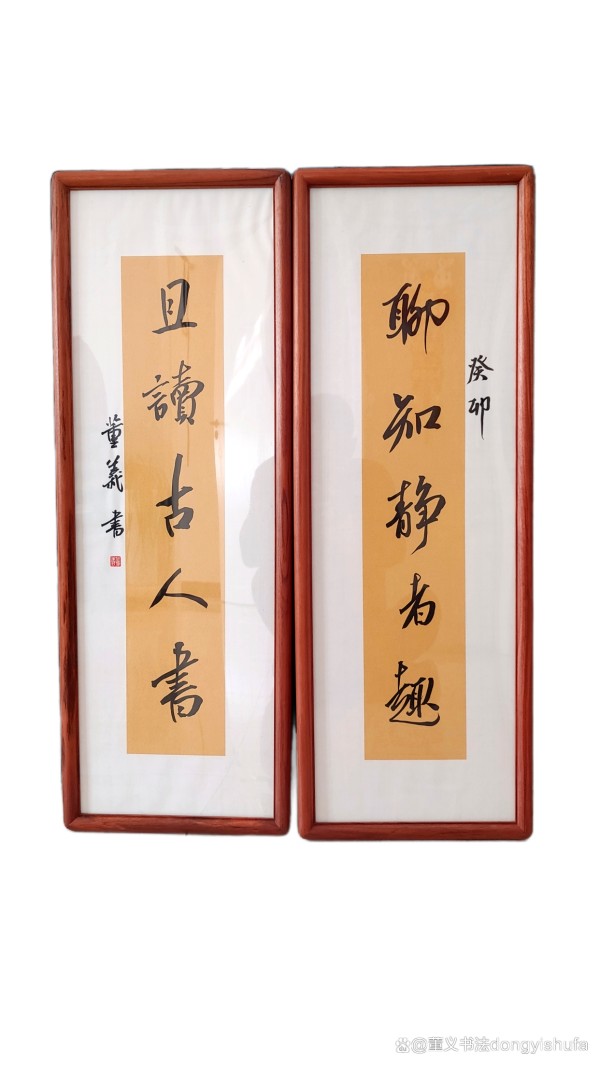 癸卯
聊知静者趣
且讀古人書
董義書
@董义书法dongyishufa